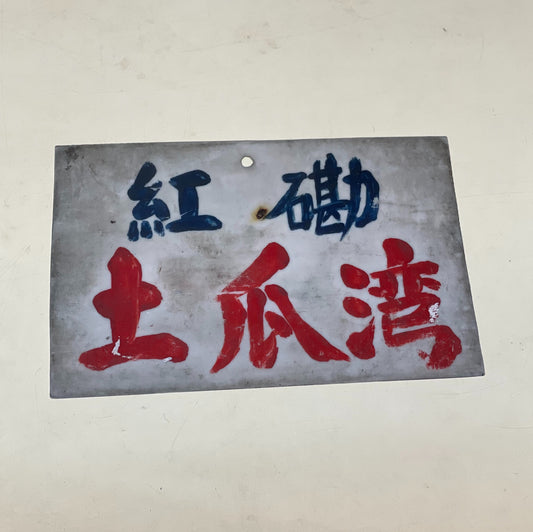 紅磡
土瓜湾